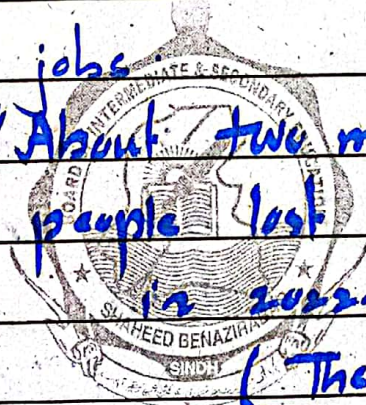 jobs.
"About two m
people lost
in 2022.
( The
BOARD OF INTERMEDIATE & SECONDARY EDUCATION
SHAHEED BENAZIRABAD
SINDH